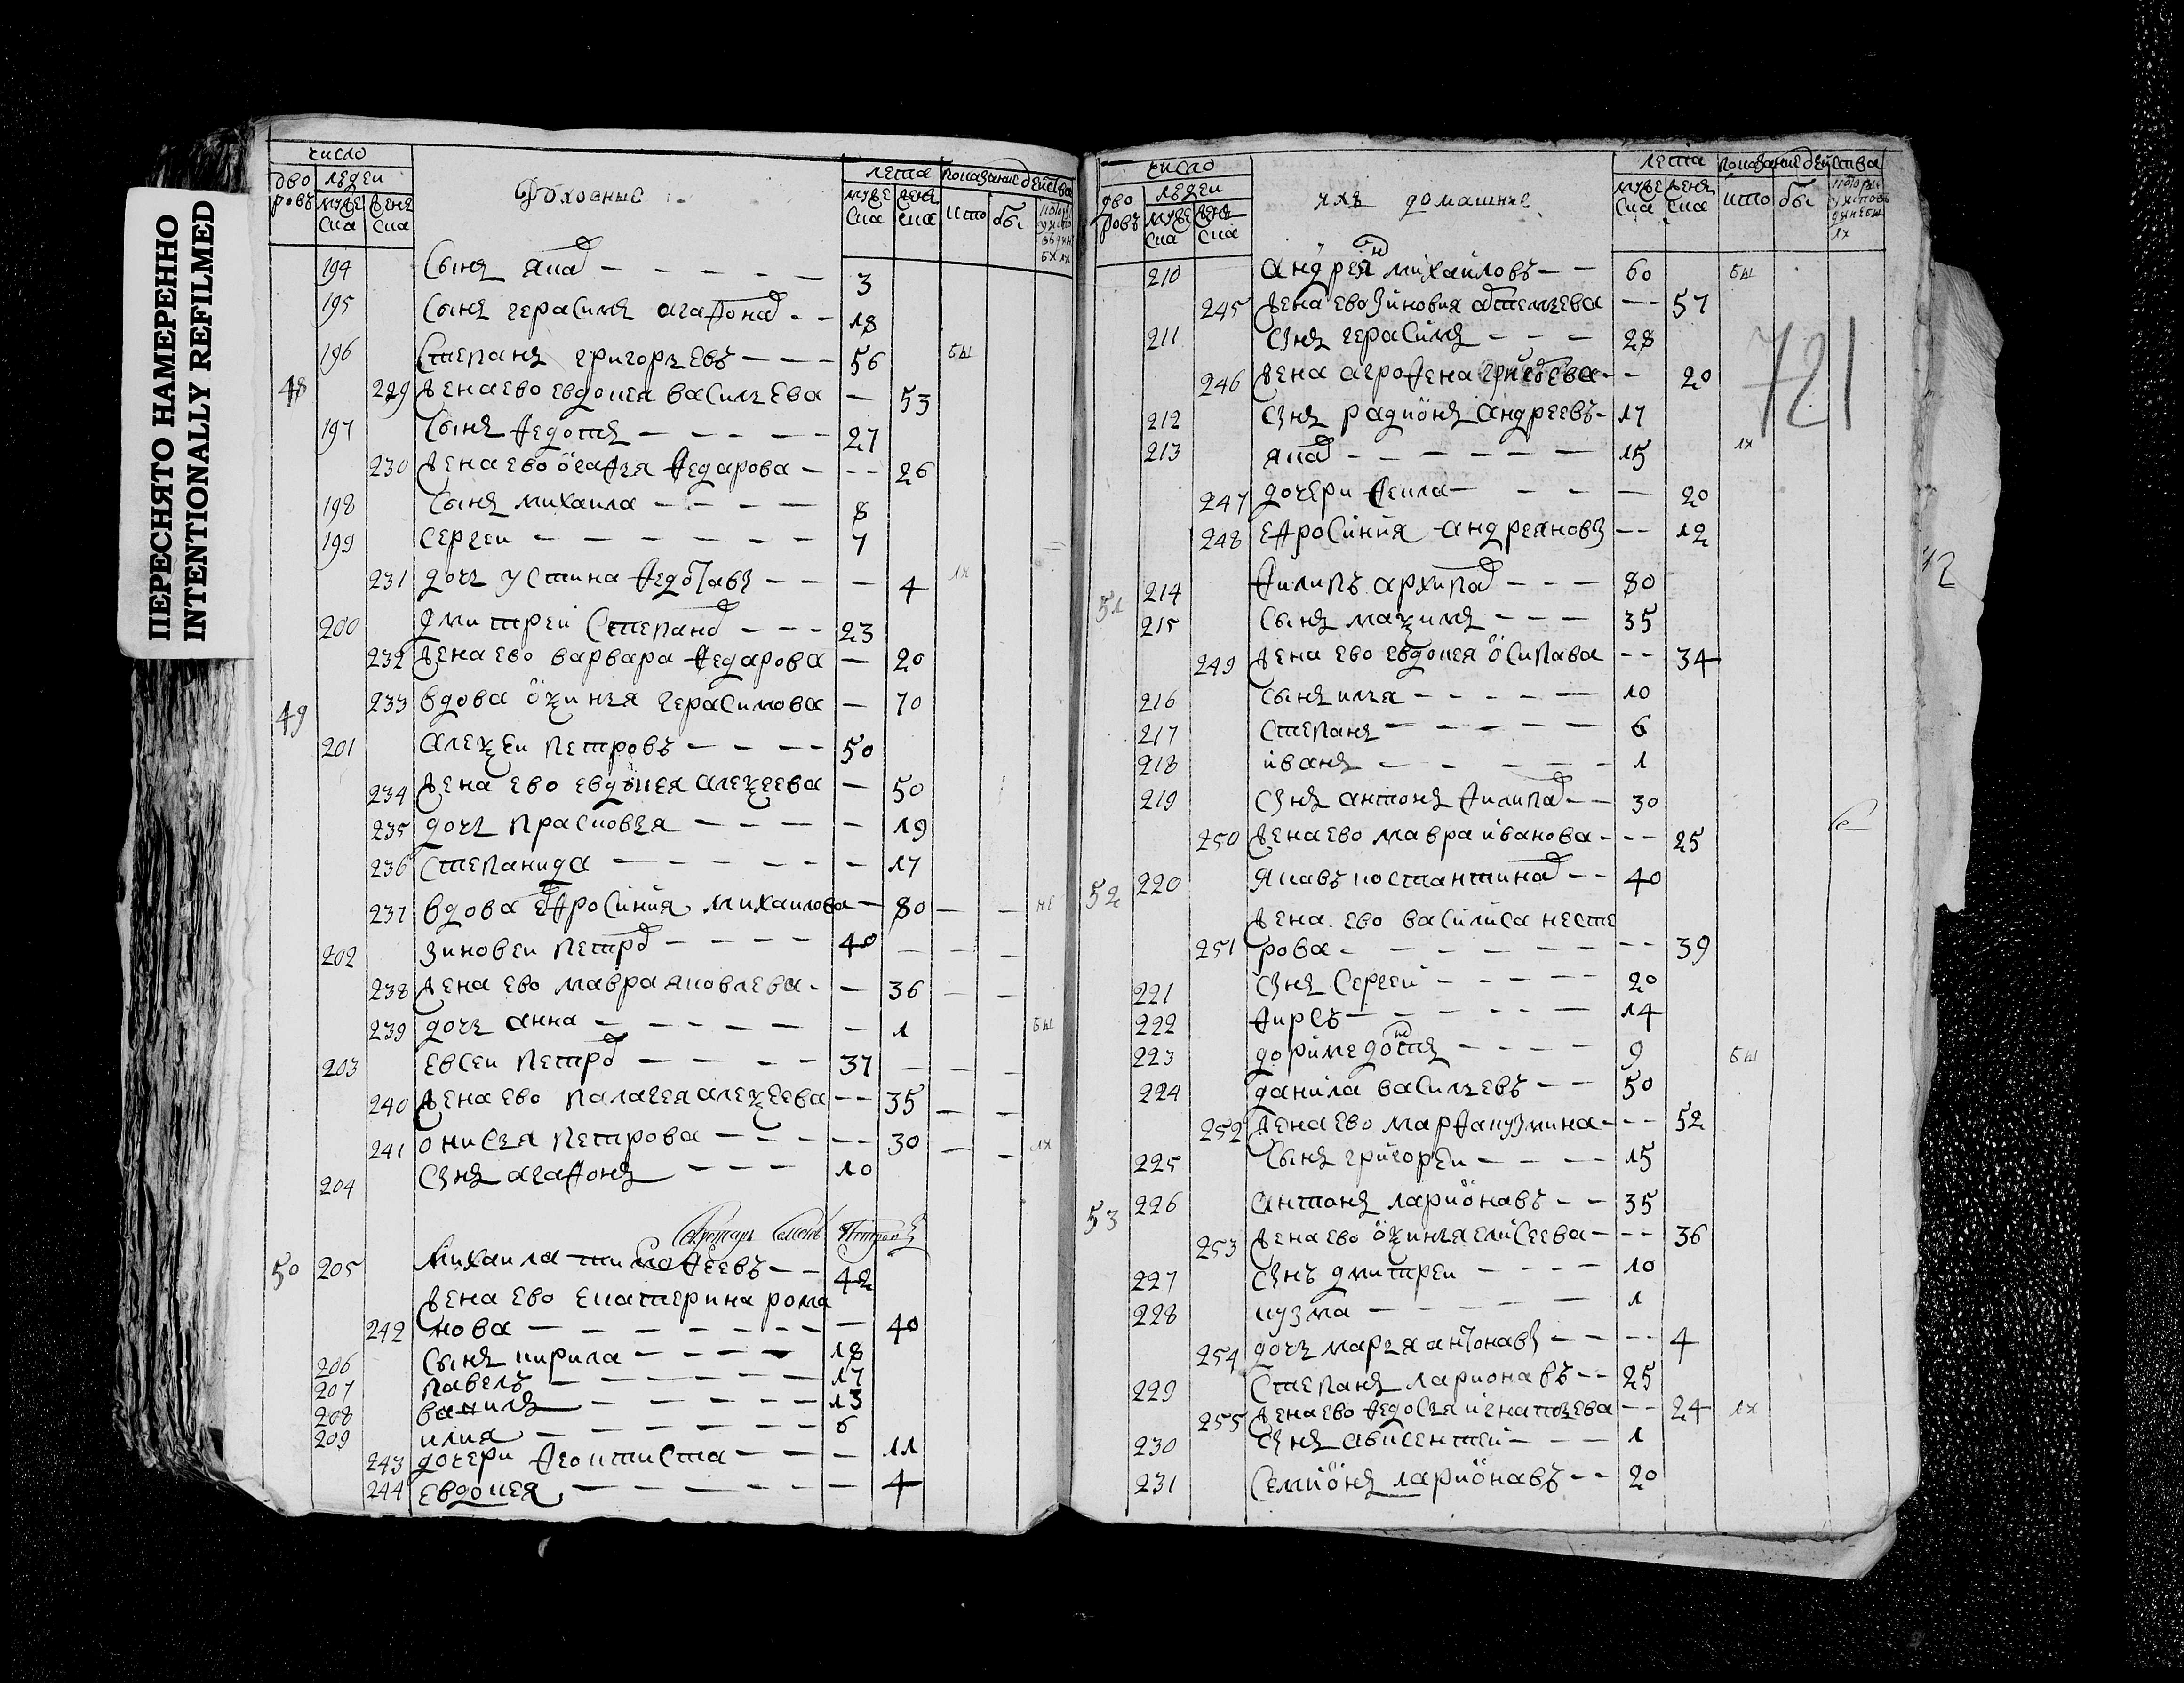 ПЕРЕСНЯТО НАМЕРЕННО
INTENTIONALLY REFILMED
число
лета показание действа
дво ровъ людеи
муже ска женс ска
Духовные
муже ска женс ска
исто бы
194 Сынъ яков 3
195 Сынъ герасимъ агафонов 18
196 Степанъ григорьевъ 56 бы
48 229 жена ево евдокея васильева 53
197 Сынъ федотъ 27
230 жена ево огафья федарова 26
198 Сынъ михаила 8
199 сергеи 7
231 дочь устина федотава 4 ix
200 дмитреи Степанов 23
232 жена ево варвара федарова 20
49 233 вдова оксинья герасимова 70
201 алексеи петровъ 50
234 жена ево евдокея алексеева 50
235 дочь прасковья 19
236 Степанида 17
237 вдова ефросиния михаилова 80 не
202 зиновеи петров 40
238 жена ево мавра яковлева 36
239 дочь анна 1 бы
203 евсеи петров 37
240 жена ево палагея алексеева 35
241 онисья петрова 30 ix
204 Сынъ агафонъ 10
50 205 михаила тимофеевъ 42
жена ево екатерина рома
242 нова 40
206 Сынъ кирила 18
207 павелъ 17
208 13
209 илия 6
243 дочери феоктиста 11
244 евдокея 4
число
лета показание действа
дво ровъ людеи
муже ска женс ска
ихъ домашние
муже ска женс ска
исто бы
210 андреи михаиловъ 60 бы
245 жена ево зиновия артемьева 57
211 Снъ герасимъ 28
721
246 жена агрофена 20
212 Снъ радионъ андреевъ 17
213 яков 15 ix
247 дочери фекла 20
248 ефросиния андреянова 12
51 214 филипъ архипов 80
42
215 Сынъ максимъ 35
249 жена ево евдокея осипава 34
216 Сынъ илья 10
217 Степанъ 6
218 иванъ 1
219 Снъ антонъ филипов 30
250 жена ево мавра иванова 25
52 220 яковъ костантинов 40
жена ево василиса несте
251 рова 39
221 Снъ Сергеи 20
222 фирсъ 14
223 доримедонтъ 9 бы
224 данила васильевъ 50
252 жена ево марфа кузмина 52
225 Сынъ григореи 15
53 226 антонъ ларионавъ 35
253 жена ево оксинья елисеева 36
227 Снъ дмитреи 10
228 кузма 1
254 дочь марья антонава 4
229 Степанъ ларионавъ 25
255 жена ево федосья игнатьева 24 ix
230 Снъ авксентеи 1
231 Семионъ ларионавъ 20